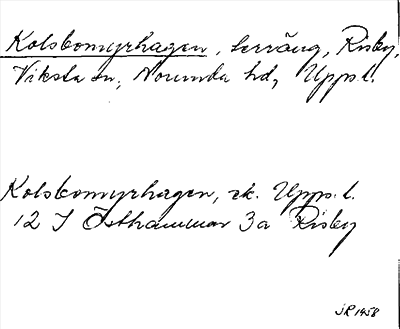 Kolsbomyrhagen, terräng, Risby,
Viksta sn, Norunda hd, Upps. l.
Kolsbomyrhagen, ek. Upps. l.
12 I Östhammar 3a Risby
JR 1958